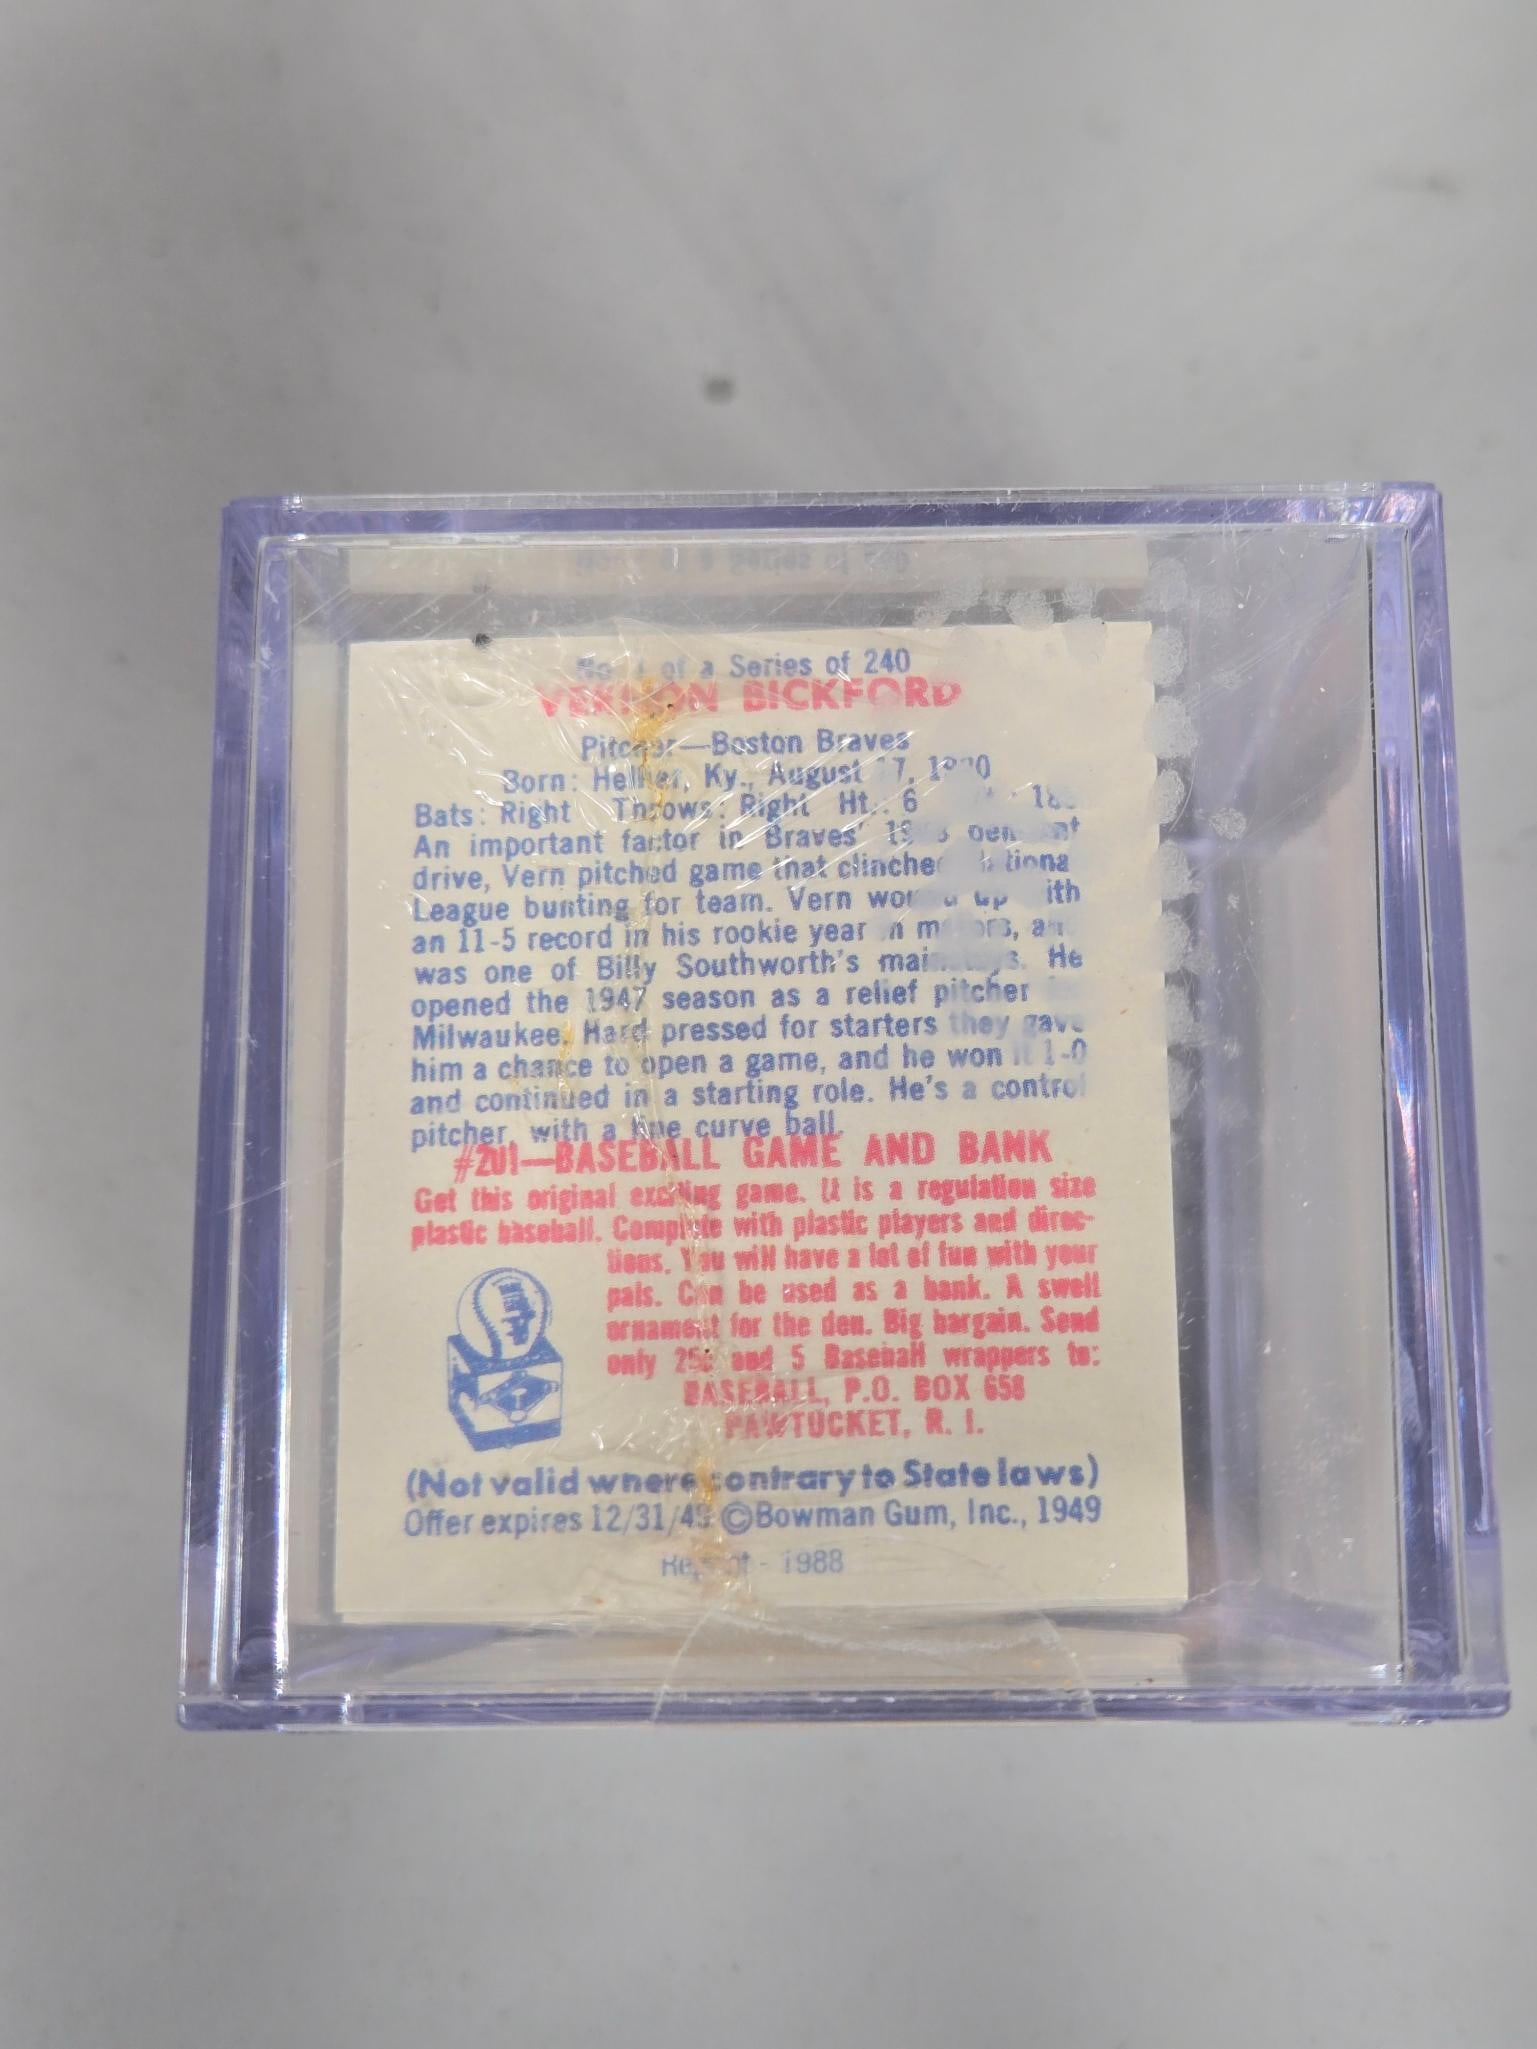 No. 1 of a Series of 240
VERNON BICKFORD
Pitcher—Boston Braves
Born: Hellier, Ky., August 17, 1920
Bats: Right Throws: Right Ht.: 6
An important factor in Braves' 1948 pennant
drive, Vern pitched game that clinched National
League bunting for team. Vern wound up with
an 11-5 record in his rookie year in majors, and
was one of Billy Southworth's mainstays. He
opened the 1947 season as a relief pitcher
Milwaukee. Hard pressed for starters they gave
him a chance to open a game, and he won it 1-0
and continued in a starting role. He's a control
pitcher, with a fine curve ball.
#201—BASEBALL GAME AND BANK
Get this original exciting game. It is a regulation size
plastic baseball. Complete with plastic players and direc-
tions. You will have a lot of fun with your
pals. Can be used as a bank. A swell
ornament for the den. Big bargain. Send
only 25c and 5 Baseball wrappers to:
BASEBALL, P.O. BOX 658
PAWTUCKET, R. I.
(Not valid where contrary to State laws)
Offer expires 12/31/49 ©Bowman Gum, Inc., 1949
Reprint - 1988